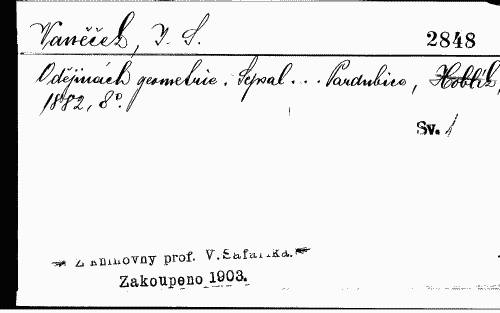 Vaněček, J. S.
2848
O dějinách geometrie. Sepsal... Pardubice, Hoblík,
1882, 8°.
Sv. 1
Z knihovny prof. V. Šafaříka.
Zakoupeno 1903.